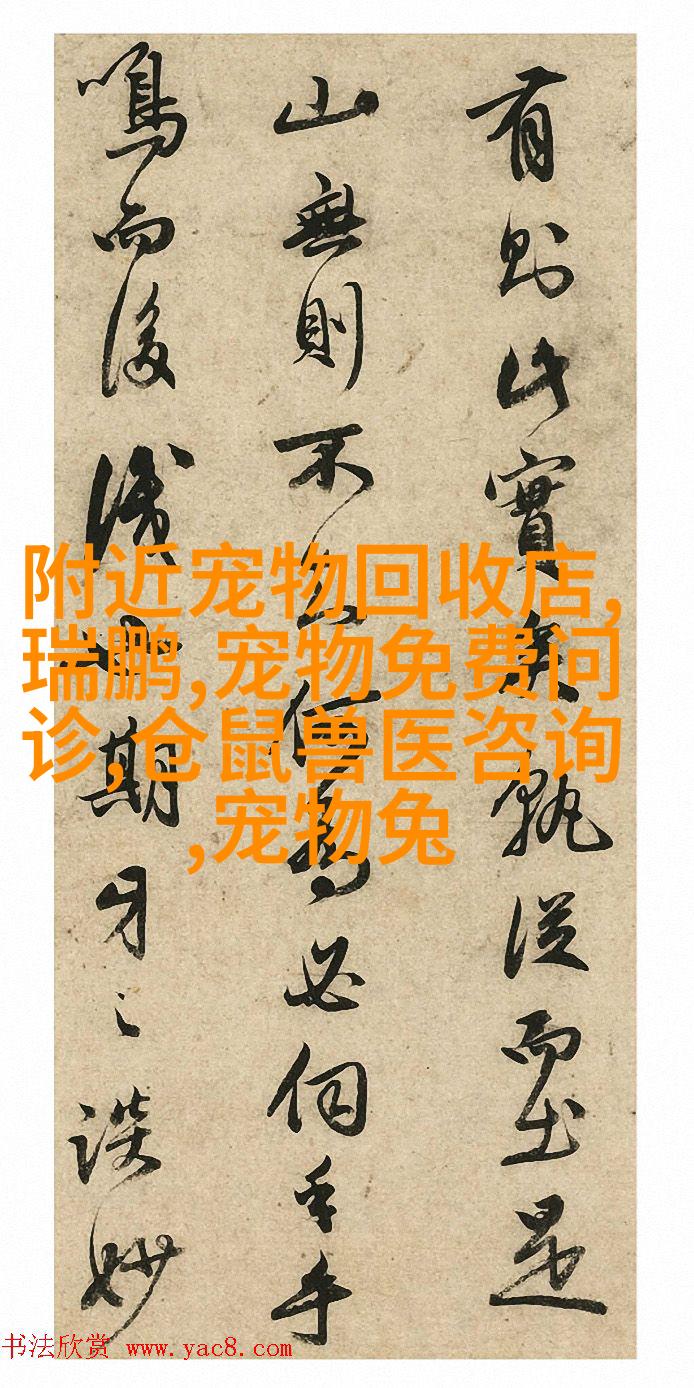 有則此實矣孰從而出是
山無則不名何為必伺乎手
鳴而後識也期牙之談妙
附近宠物回收店,
瑞鹏,宠物免费问
诊,仓鼠兽医咨询
,宠物兔
书法欣赏 www.yac8.com